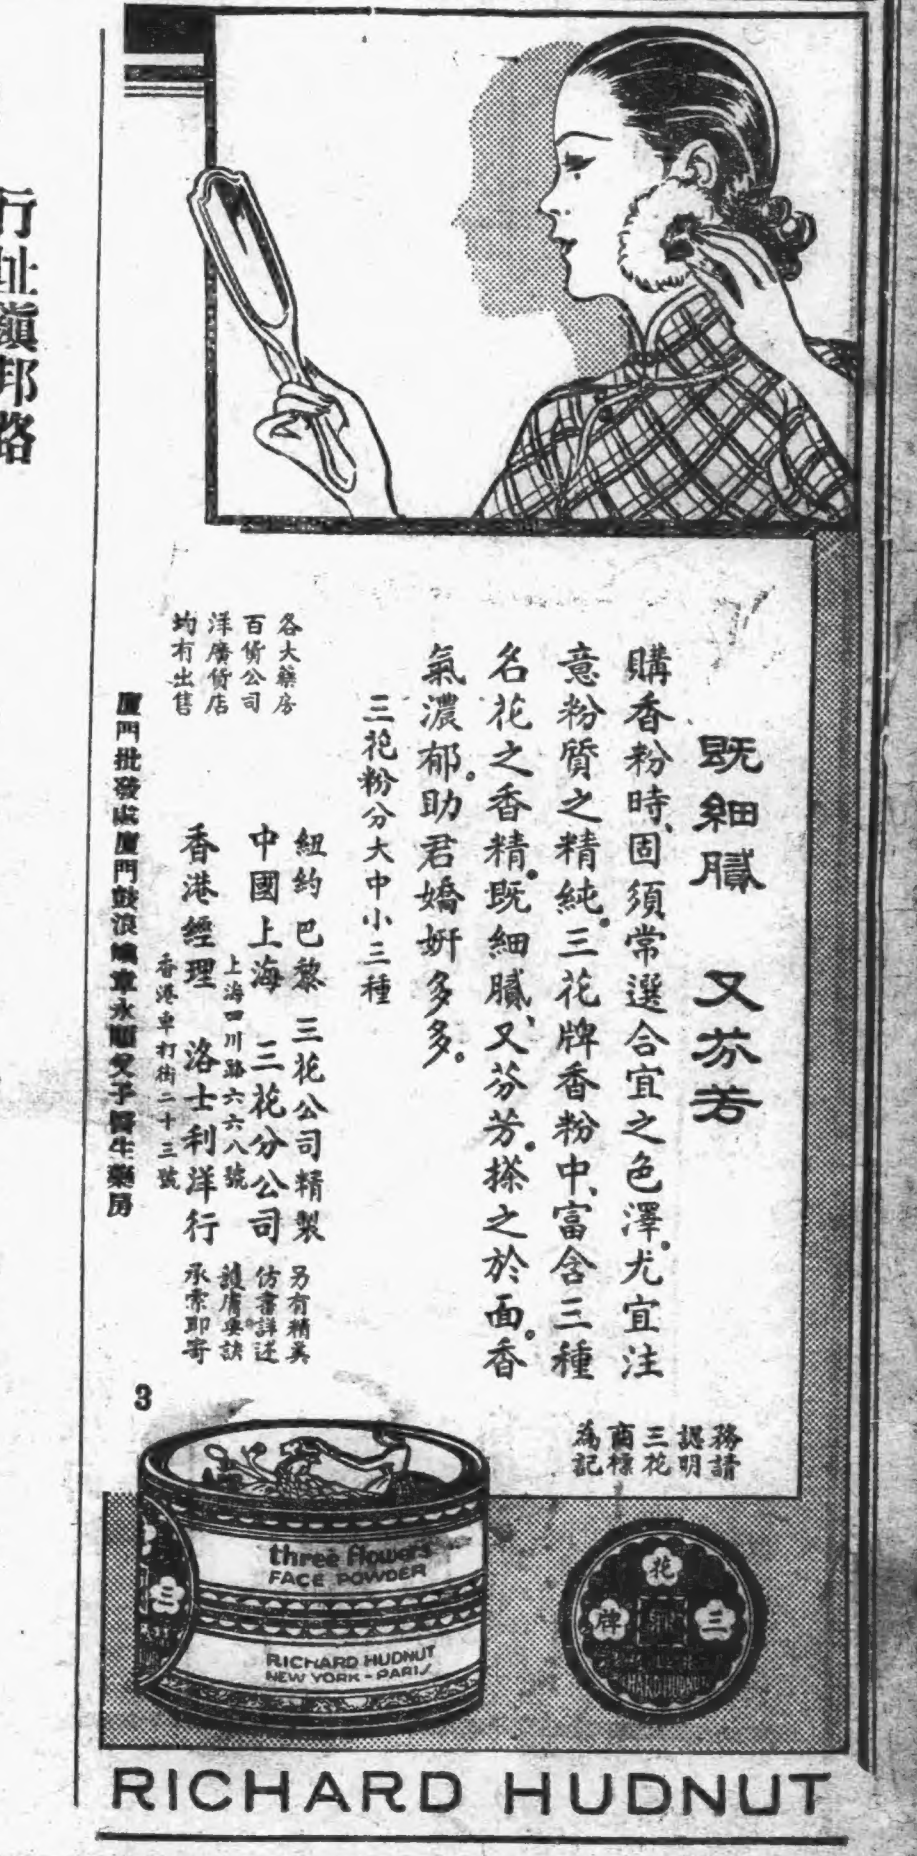 行址鎭邦路
既細膩　又芬芳
購香粉時、固須常選合宜之色澤。尤宜注
意粉質之精純。三花牌香粉中、富含三種
名花之香精。既細膩、又芬芳。搽之於面。香
氣濃郁。助君嬌妍多多。
三花粉分大中小三種
各大藥房
百貨公司
洋廣貨店
均有出售
紐約巴黎　三花公司精製
中國上海　三花分公司
上海四川路六六八號
香港經理　洛士利洋行
香港車打街二十三號
另有精美
仿書詳述
護膚要訣
承索即寄
廈門批發處廈門鼓浪嶼章永順父子醫生藥房
務請
認明
三花
商標
為記
3
three flowers
FACE POWDER
RICHARD HUDNUT
NEW YORK - PARIS
三
花
三
牌
RICHARD HUDNUT